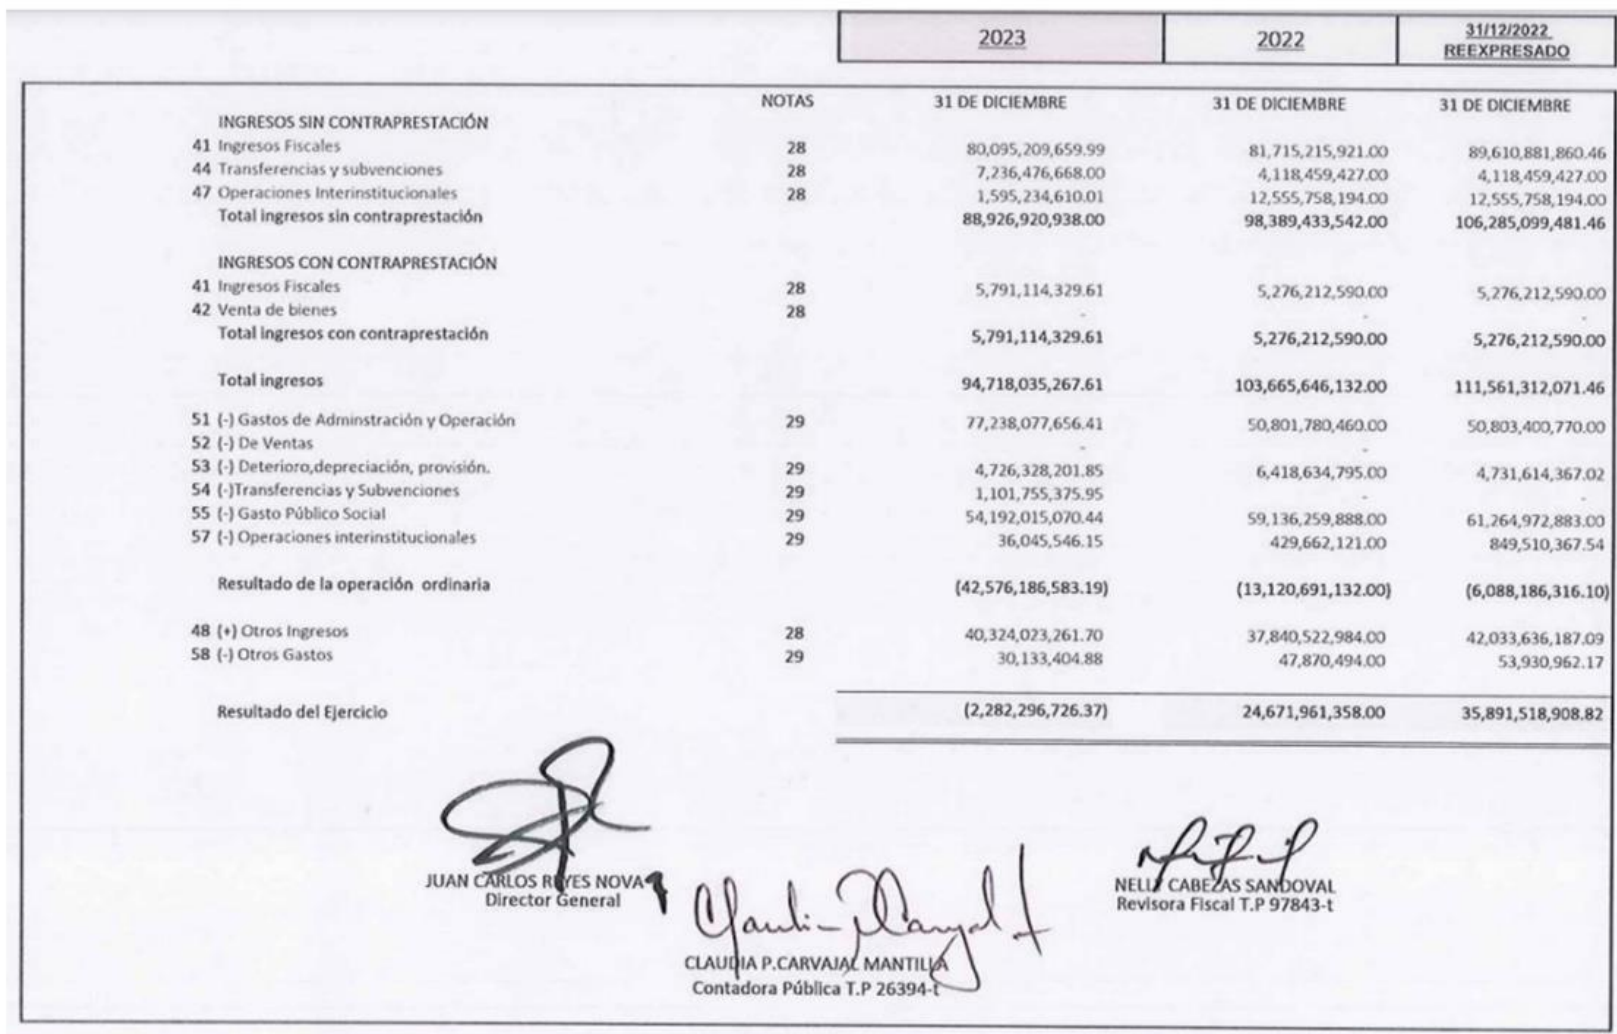 2023 2022 31/12/2022 REEXPRESADO
NOTAS 31 DE DICIEMBRE 31 DE DICIEMBRE 31 DE DICIEMBRE
INGRESOS SIN CONTRAPRESTACIÓN
41 Ingresos Fiscales 28 80,095,209,659.99 81,715,215,921.00 89,610,881,860.46
44 Transferencias y subvenciones 28 7,236,476,668.00 4,118,459,427.00 4,118,459,427.00
47 Operaciones Interinstitucionales 28 1,595,234,610.01 12,555,758,194.00 12,555,758,194.00
Total ingresos sin contraprestación 88,926,920,938.00 98,389,433,542.00 106,285,099,481.46
INGRESOS CON CONTRAPRESTACIÓN
41 Ingresos Fiscales 28 5,791,114,329.61 5,276,212,590.00 5,276,212,590.00
42 Venta de bienes 28 - -
Total ingresos con contraprestación 5,791,114,329.61 5,276,212,590.00 5,276,212,590.00
Total ingresos 94,718,035,267.61 103,665,646,132.00 111,561,312,071.46
51 (-) Gastos de Adminstración y Operación 29 77,238,077,656.41 50,801,780,460.00 50,803,400,770.00
52 (-) De Ventas - -
53 (-) Deterioro,depreciación, provisión. 29 4,726,328,201.85 6,418,634,795.00 4,731,614,367.02
54 (-)Transferencias y Subvenciones 29 1,101,755,375.95 - -
55 (-) Gasto Público Social 29 54,192,015,070.44 59,136,259,888.00 61,264,972,883.00
57 (-) Operaciones interinstitucionales 29 36,045,546.15 429,662,121.00 849,510,367.54
Resultado de la operación ordinaria (42,576,186,583.19) (13,120,691,132.00) (6,088,186,316.10)
48 (+) Otros Ingresos 28 40,324,023,261.70 37,840,522,984.00 42,033,636,187.09
58 (-) Otros Gastos 29 30,133,404.88 47,870,494.00 53,930,962.17
Resultado del Ejercicio (2,282,296,726.37) 24,671,961,358.00 35,891,518,908.82
JUAN CARLOS REYES NOVA
Director General
NELLY CABEZAS SANDOVAL
Revisora Fiscal T.P 97843-t
CLAUDIA P.CARVAJAL MANTILLA
Contadora Pública T.P 26394-t